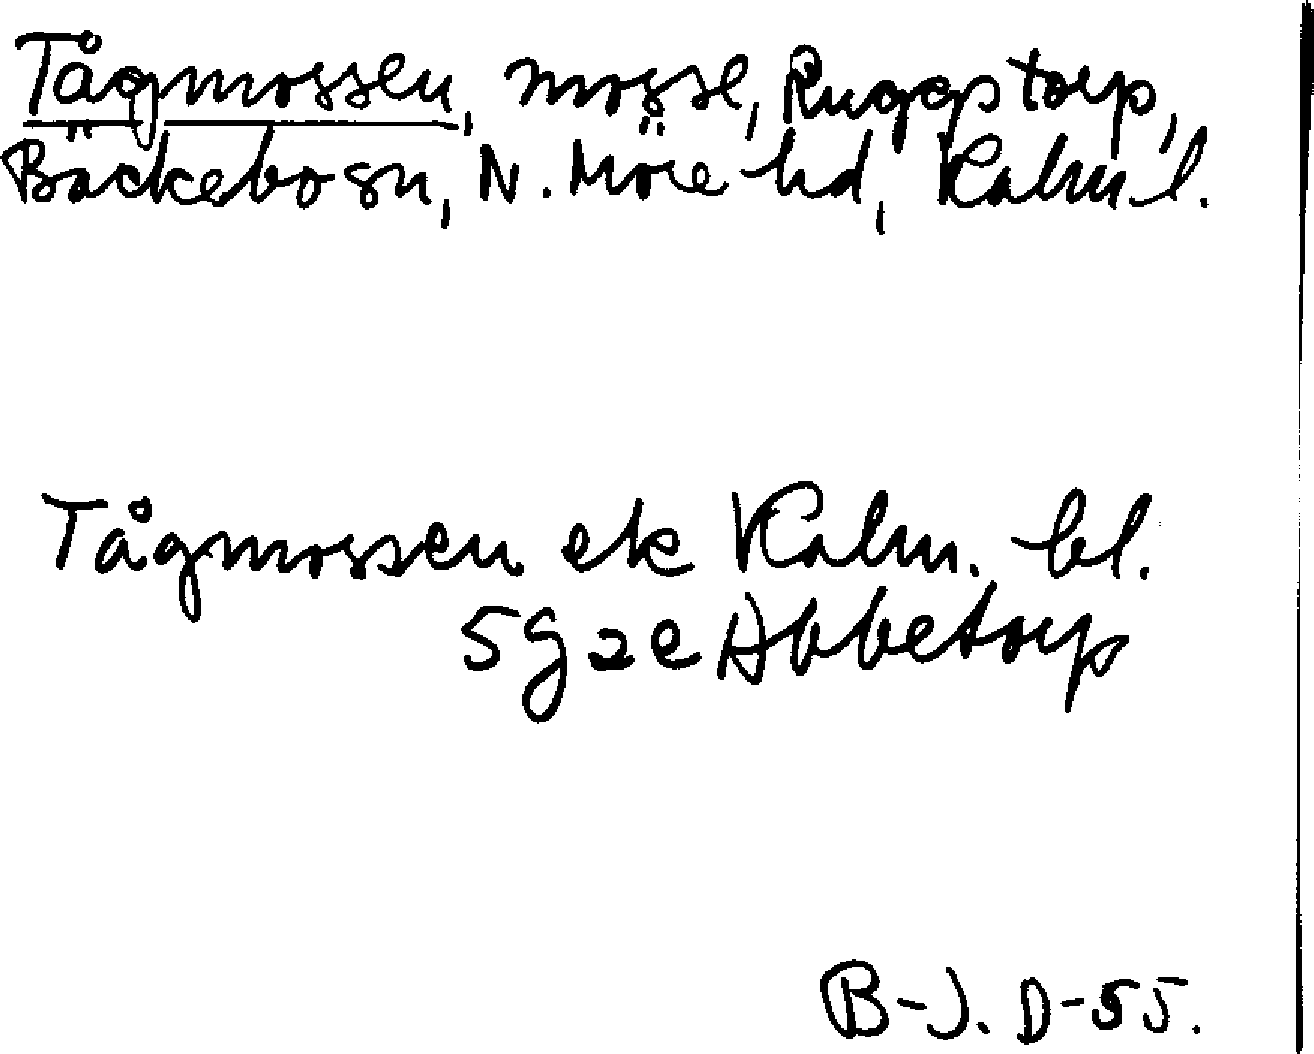 Tågmossen, mosse, Ruggstorp,
Bäckebo sn, N. Möre hd, Kalm. l.
Tågmossen ek Kalm. bl.
5g2e Abbetorp
B-J. D-55.